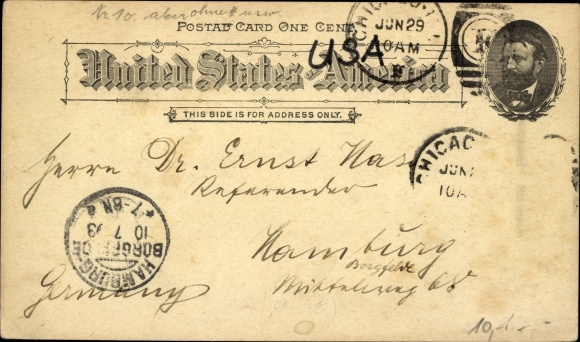 Nr 10. aber ohne # usw.
POSTAL CARD ONE CENT
CHICAGO, ILL.
JUN 29
10 AM
USA
United States of America
THIS SIDE IS FOR ADDRESS ONLY.
CHICAGO
JUN
10 A
Herrn Dr. Ernst Has
Referendar
Hamburg
Borgfelde
Mittelweg
Germany
HAMBURG
BORGFELDE
10 7 93
*7-8N a
10,-